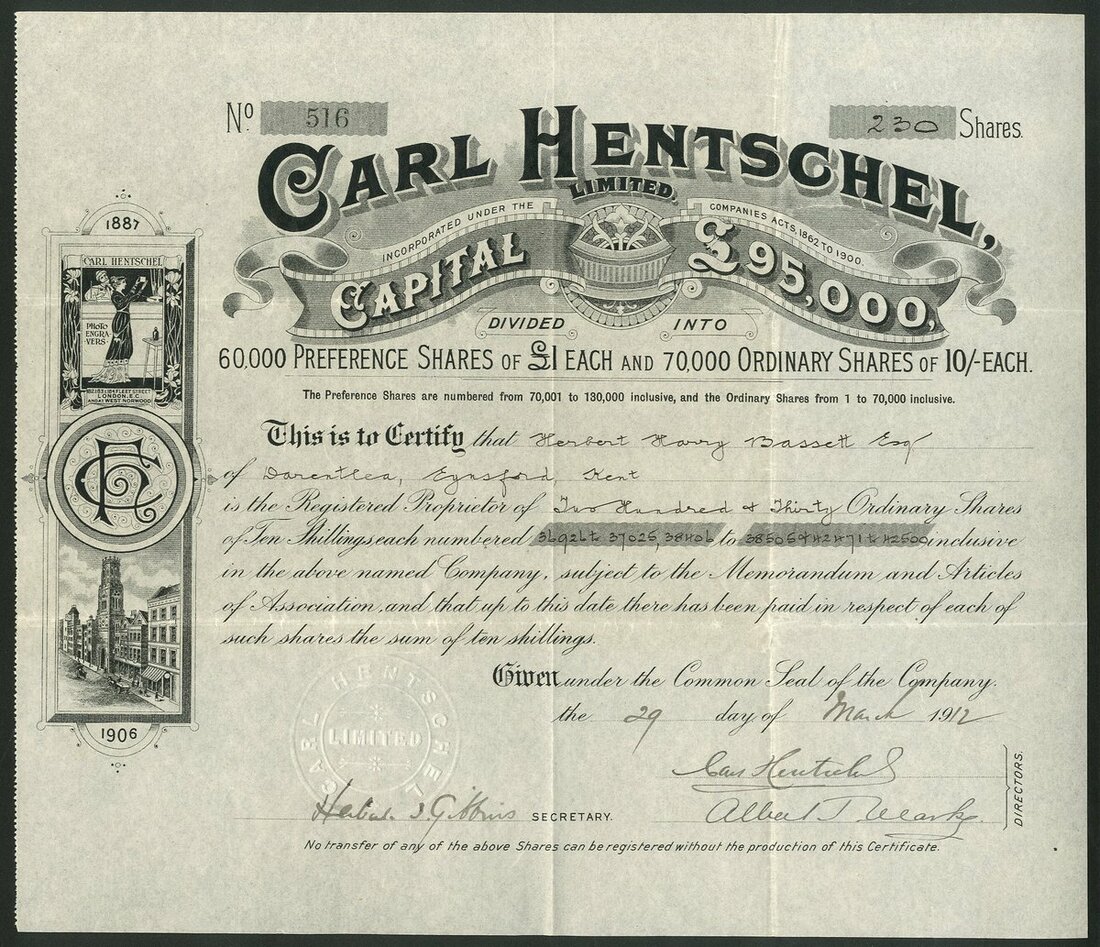 No. 516
230 Shares.
CARL HENTSCHEL,
LIMITED.
INCORPORATED UNDER THE COMPANIES ACTS, 1862 TO 1900.
CAPITAL £95,000,
DIVIDED INTO
60,000 PREFERENCE SHARES OF £1 EACH AND 70,000 ORDINARY SHARES OF 10/- EACH.
The Preference Shares are numbered from 70,001 to 130,000 inclusive, and the Ordinary Shares from 1 to 70,000 inclusive.
This is to Certify that Herbert Harry Bassett Esqr
of Darenthlea, Eynsford, Kent
is the Registered Proprietor of Two Hundred & Thirty Ordinary Shares
of Ten Shillings each numbered 36926 to 37025, 38406 to 38505 & 42471 to 42500 inclusive
in the above named Company, subject to the Memorandum and Articles
of Association, and that up to this date there has been paid in respect of each of
such shares the sum of ten shillings.
Given under the Common Seal of the Company.
the 29 day of March 1912
Carl Hentschel
Albert T
DIRECTORS.
SECRETARY.
No transfer of any of the above Shares can be registered without the production of this Certificate.
1887
CARL HENTSCHEL
PHOTO
ENGRA
VERS
182.183 & 184 FLEET STREET
LONDON, E.C.
AND AT WEST NORWOOD
CH
1906
CARL HENTSCHEL
LIMITED